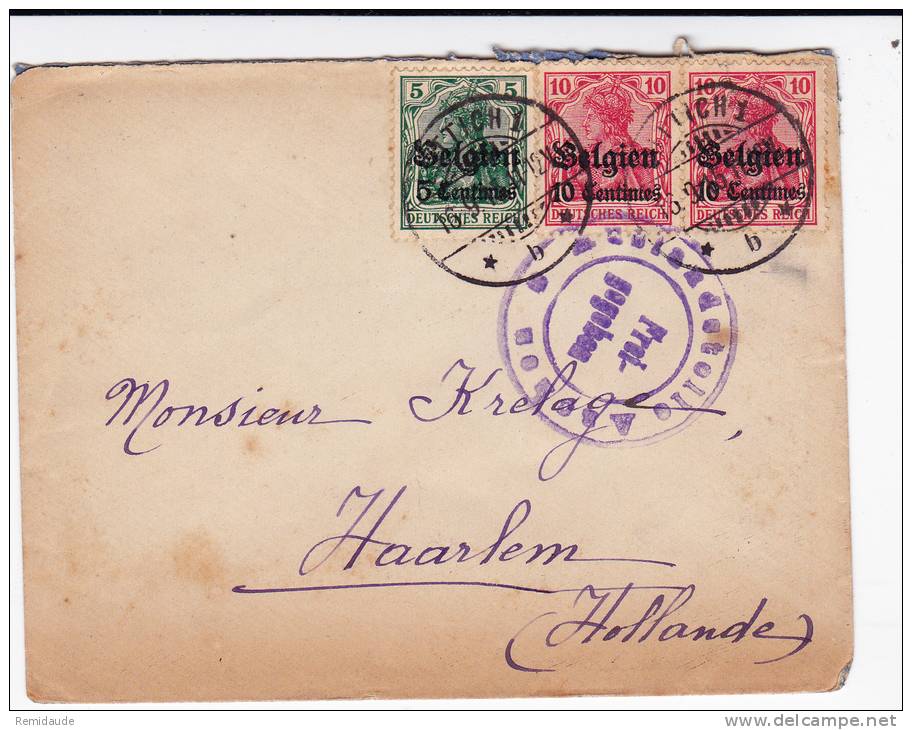 5 10 10 10 10
Belgien Belgien Belgien
5 Centimes 10 Centimes 10 Centimes
DEUTSCHES REICH DEUTSCHES REICH DEUTSCHES REICH
TTICH 1 TTICH 1
b b
Frei-
gegeben
Monsieur Krelage,
Haarlem
(Hollande)
Remidaude
www.delcampe.net